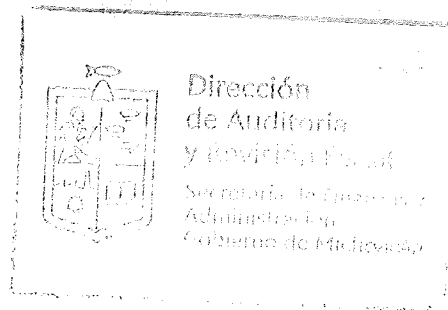 Dirección
de Auditoría
y Revisión Fiscal
Secretaría de Finanzas y
Administración
Gobierno de Michoacán